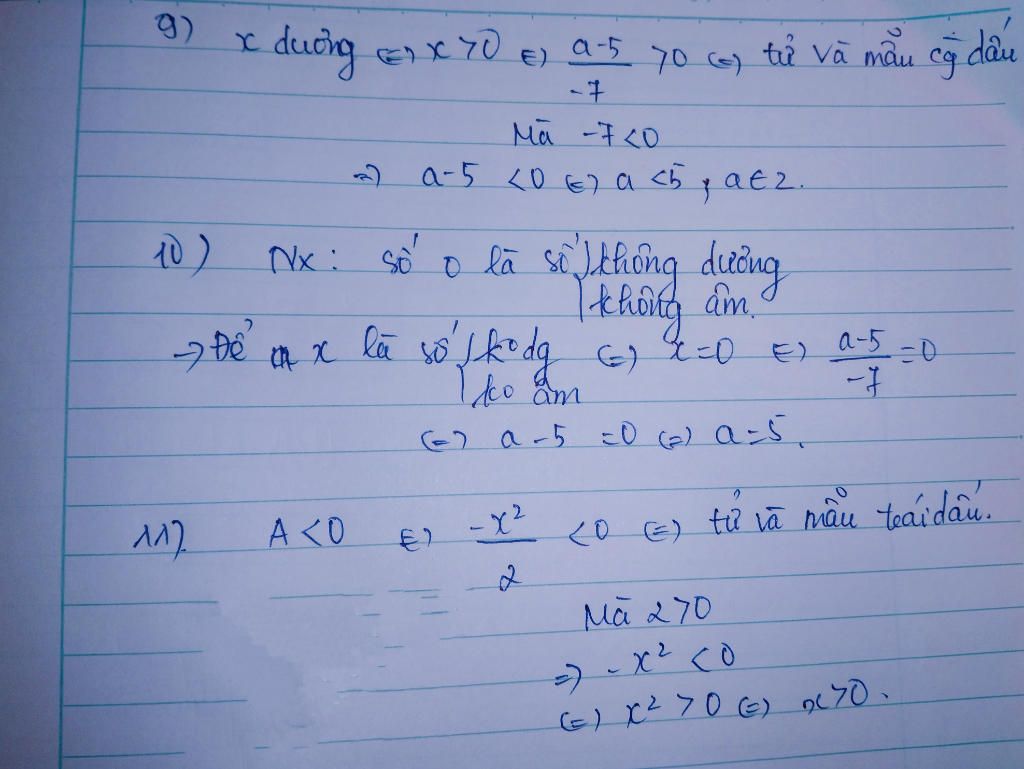 9) x dương ⇔ x > 0 ⇔ a-5/-7 > 0 ⇔ tử và mẫu cg dấu
Mà -7 < 0
⇒ a-5 < 0 ⇔ a < 5, a ∈ Z.
10) Nx: số 0 là số { không dương
không âm.
→ Để x là số { ko dg ⇔ x = 0 ⇔ a-5/-7 = 0
ko âm
⇔ a - 5 = 0 ⇔ a = 5.
11) A < 0 ⇔ -x²/2 < 0 ⇔ tử và mẫu trái dấu.
Mà 2 > 0
⇒ -x² < 0
⇔ x² > 0 ⇔ x > 0.